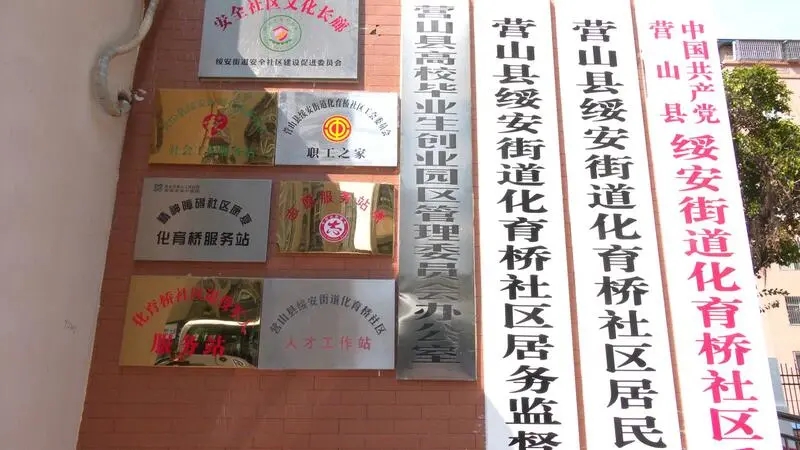 安全社区文化长廊
绥安街道安全社区建设促进委员会
社会工作服务站
营山县绥安街道化育桥社区工会委员会
职工之家
精神障碍社区康复
化育桥服务站
志愿服务站
化育桥社区
服务站
营山县绥安街道化育桥社区
人才工作站
营山县高校毕业生创业园区管理委员会办公室
营山县绥安街道化育桥社区居务监督
营山县绥安街道化育桥社区居民
中国共产党
营山县
绥安街道化育桥社区